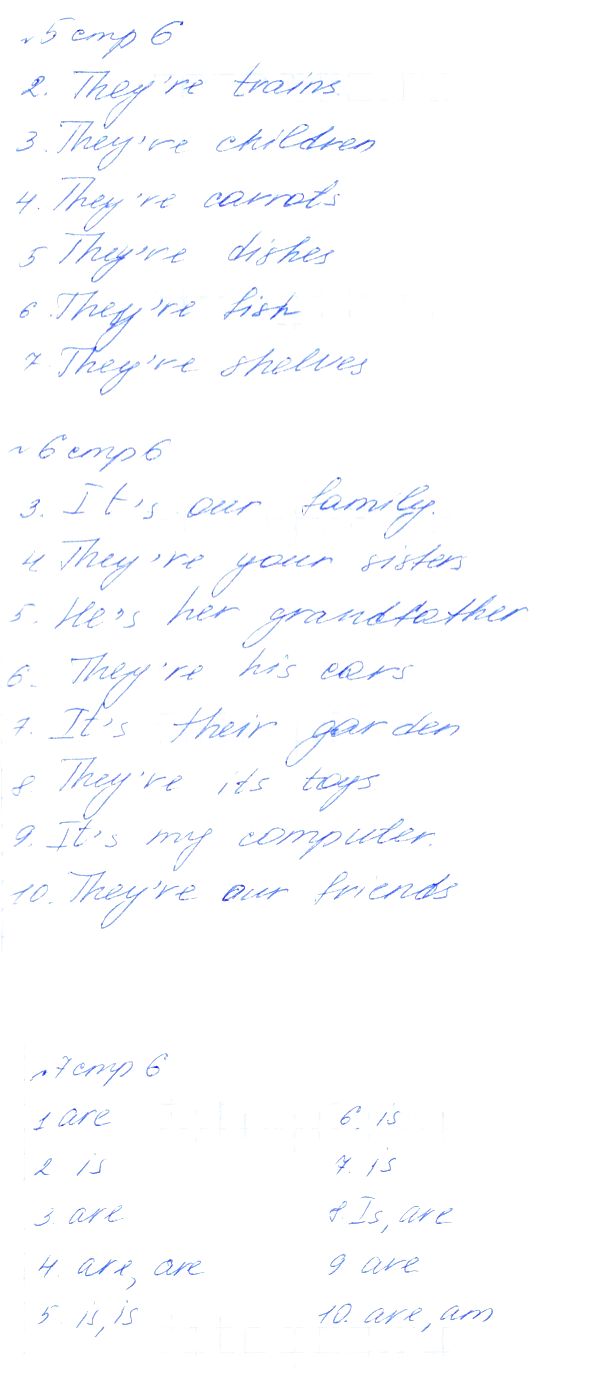 №5 стр 6
2. They're trains
3. They're children
4. They're carrots
5 They're dishes
6. They're fish
7. They're shelves
№6 стр 6
3. It's our family.
4 They're your sisters
5. He's her grandfather
6. They're his cars
7. It's their garden
8 They're its toys
9. It's my computer.
10. They're our friends
№7 стр 6
1 are
2 is
3. are
4. are, are
5. is, is
6. is
7. is
8. Is, are
9 are
10. are, am